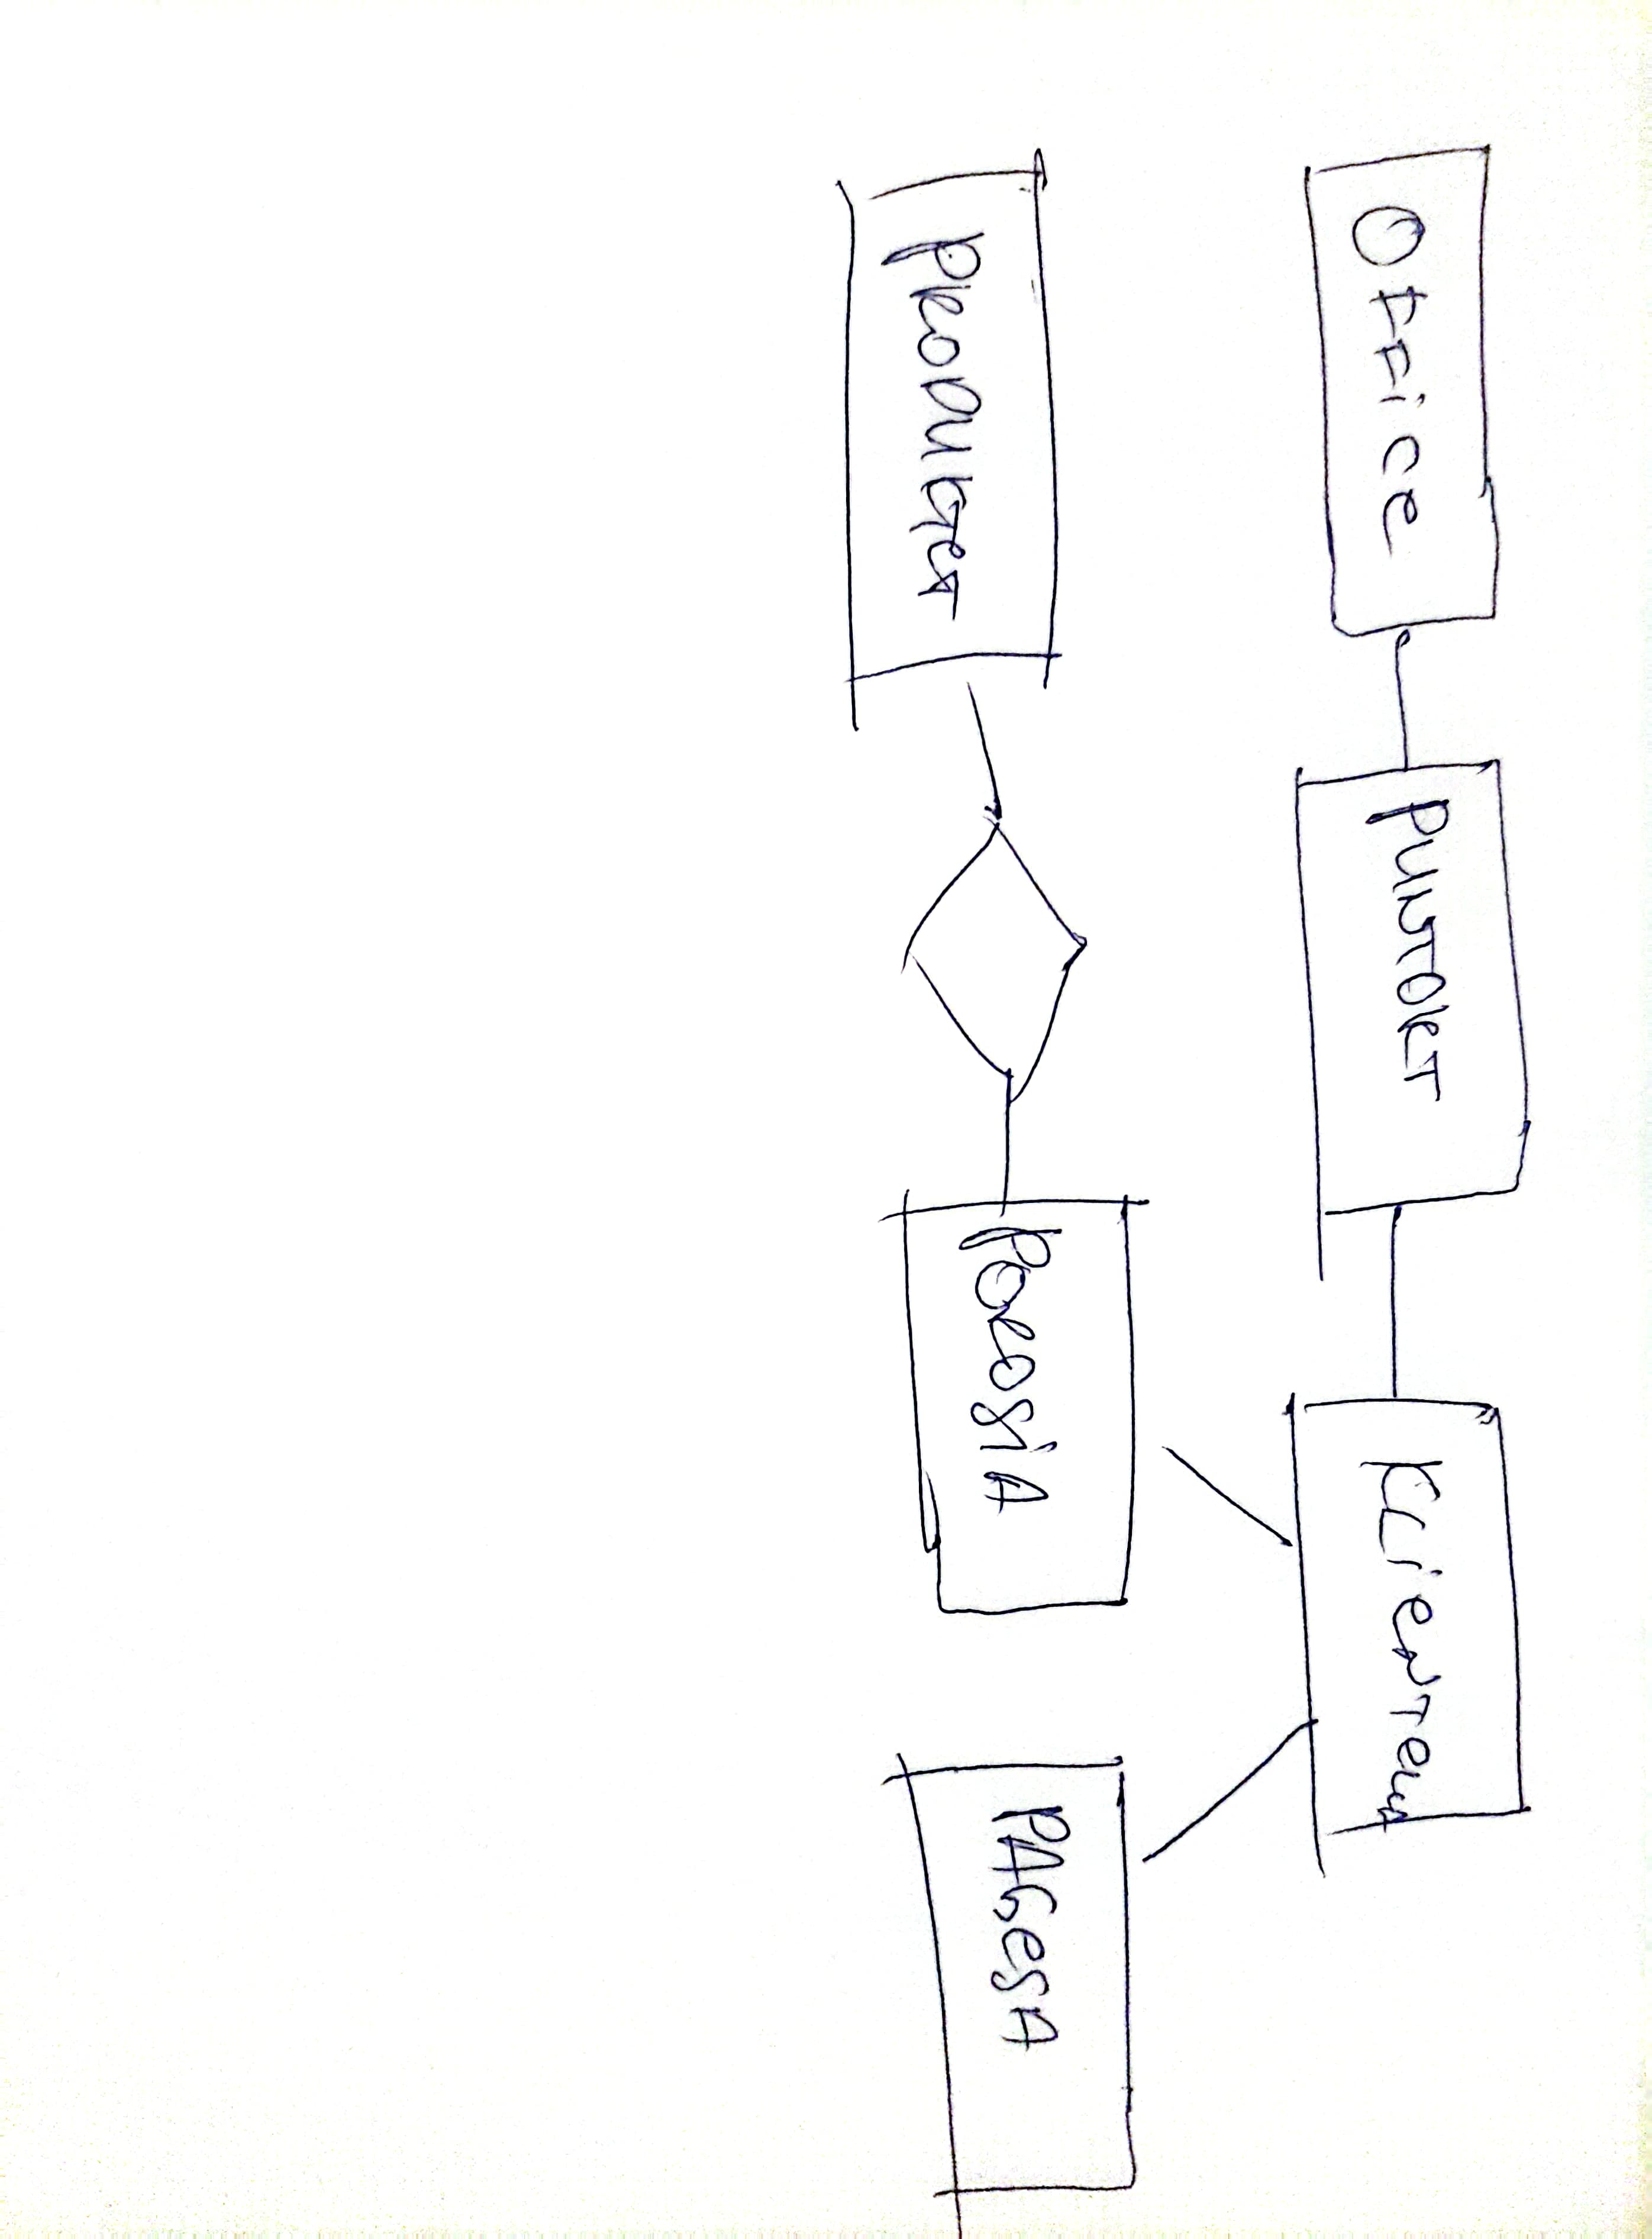 Office
PUNTORET
Klientet
PRODUKTET
POROSIA
PAGESA